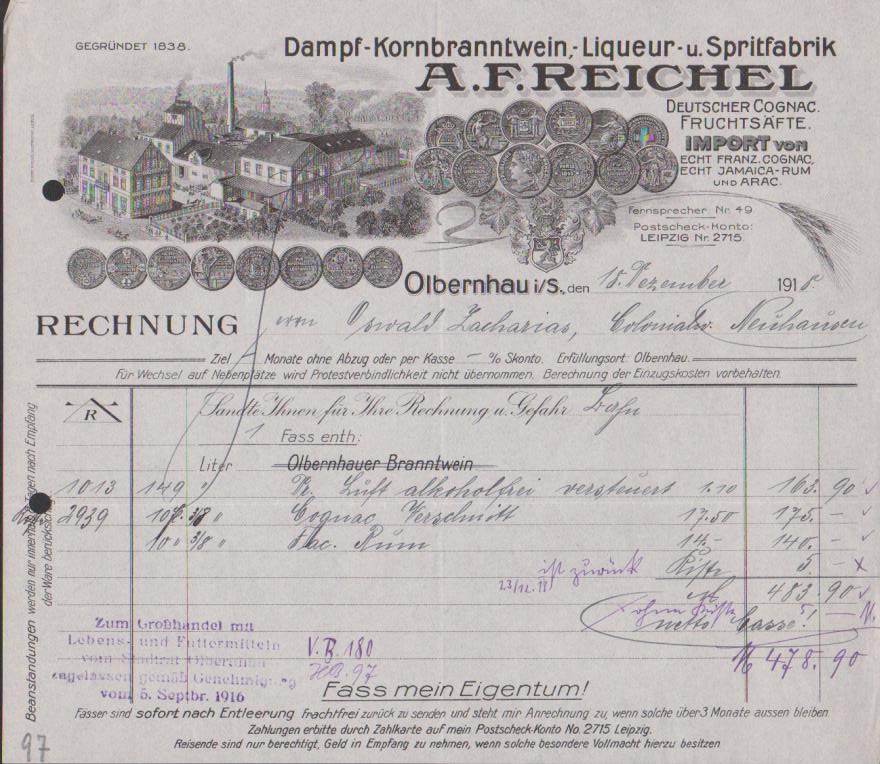 GEGRÜNDET 1838.
Dampf-Kornbranntwein,-Liqueur-u. Spritfabrik
A.F. REICHEL
DEUTSCHER COGNAC.
FRUCHTSÄFTE.
IMPORT VON
ECHT FRANZ. COGNAC,
ECHT JAMAICA-RUM
UND ARAC.
Fernsprecher: Nr. 49
Postscheck-Konto:
LEIPZIG Nr. 2715.
Olbernhau i/S., den 18. Dezember 1918.
RECHNUNG Herrn Oswald Zacharias, Colonialw. Neuhausen
Ziel — Monate ohne Abzug oder per Kasse — % Skonto. Erfüllungsort: Olbernhau.
Für Wechsel auf Nebenplätze wird Protestverbindlichkeit nicht übernommen. Berechnung der Einzugskosten vorbehalten.
R
Sandte Ihnen für Ihre Rechnung u. Gefahr Bahn
1 Fass enth:
Liter Olbernhauer Branntwein
1013 149 " Luft alkoholfrei versteuert 1.10 163. 90
Kiste 2939 10 3/8 " Cognac Verschnitt 17.50 175 —
10 " 3/8 " Fac. Rum 14.— 140. —
ist zurück Kiste 5. — x
23/12.18 483. 90
ohne Kiste 5 —
netto Casse!
M 478. 90
Zum Großhandel mit
Lebens- und Futtermitteln
vom Stadtrat Olbernhau
zugelassen gemäß Genehmigung
vom 5. Septbr. 1916
V.B. 180
HB. 97
Fass mein Eigentum!
Fässer sind sofort nach Entleerung frachtfrei zurück zu senden und steht mir Anrechnung zu, wenn solche über 3 Monate aussen bleiben
Zahlungen erbitte durch Zahlkarte auf mein Postscheck-Konto No. 2715 Leipzig.
Reisende sind nur berechtigt, Geld in Empfang zu nehmen, wenn solche besondere Vollmacht hierzu besitzen
Beanstandungen werden nur innerhalb Tagen nach Empfang
der Ware berücksichtigt
97